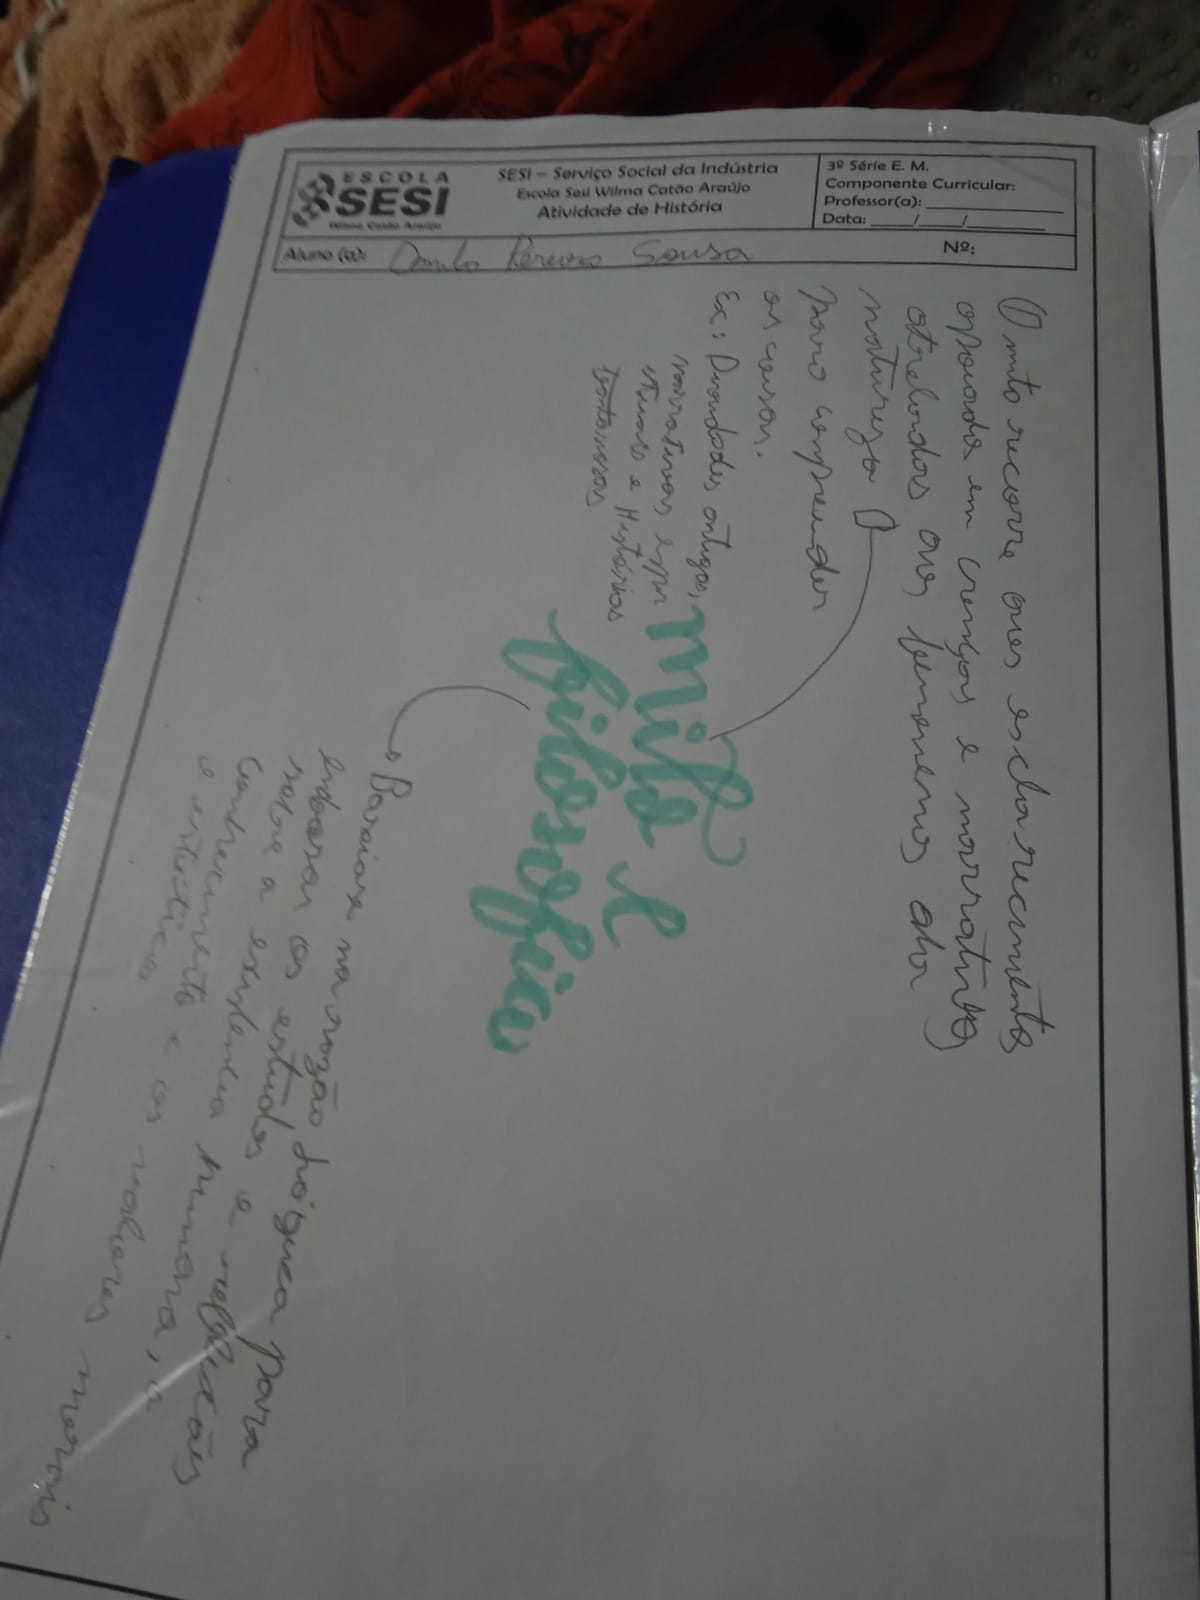 ESCOLA
SESI
Wilma Catão Araújo
SESI – Serviço Social da Indústria
Escola Sesi Wilma Catão Araújo
Atividade de História
3º Série E. M.
Componente Curricular:
Professor(a):
Data: ___/___/___
Aluno (a): Danilo Pereira Sousa
Nº:
O mito recorre aos esclarecimentos
apoiados em crenças e narrativas
atrelados aos fenomenos da
natureza
para compreender
as coisas.
Ex: Divindades antigas,
narrativas
e Histórias
fantasiosas
mito e
filosofia
Baseiase na razão Lógica para
embasar os estudos e reflexões
sobre a existencia humana, o
conhecimento e os valores morais
e esteticos